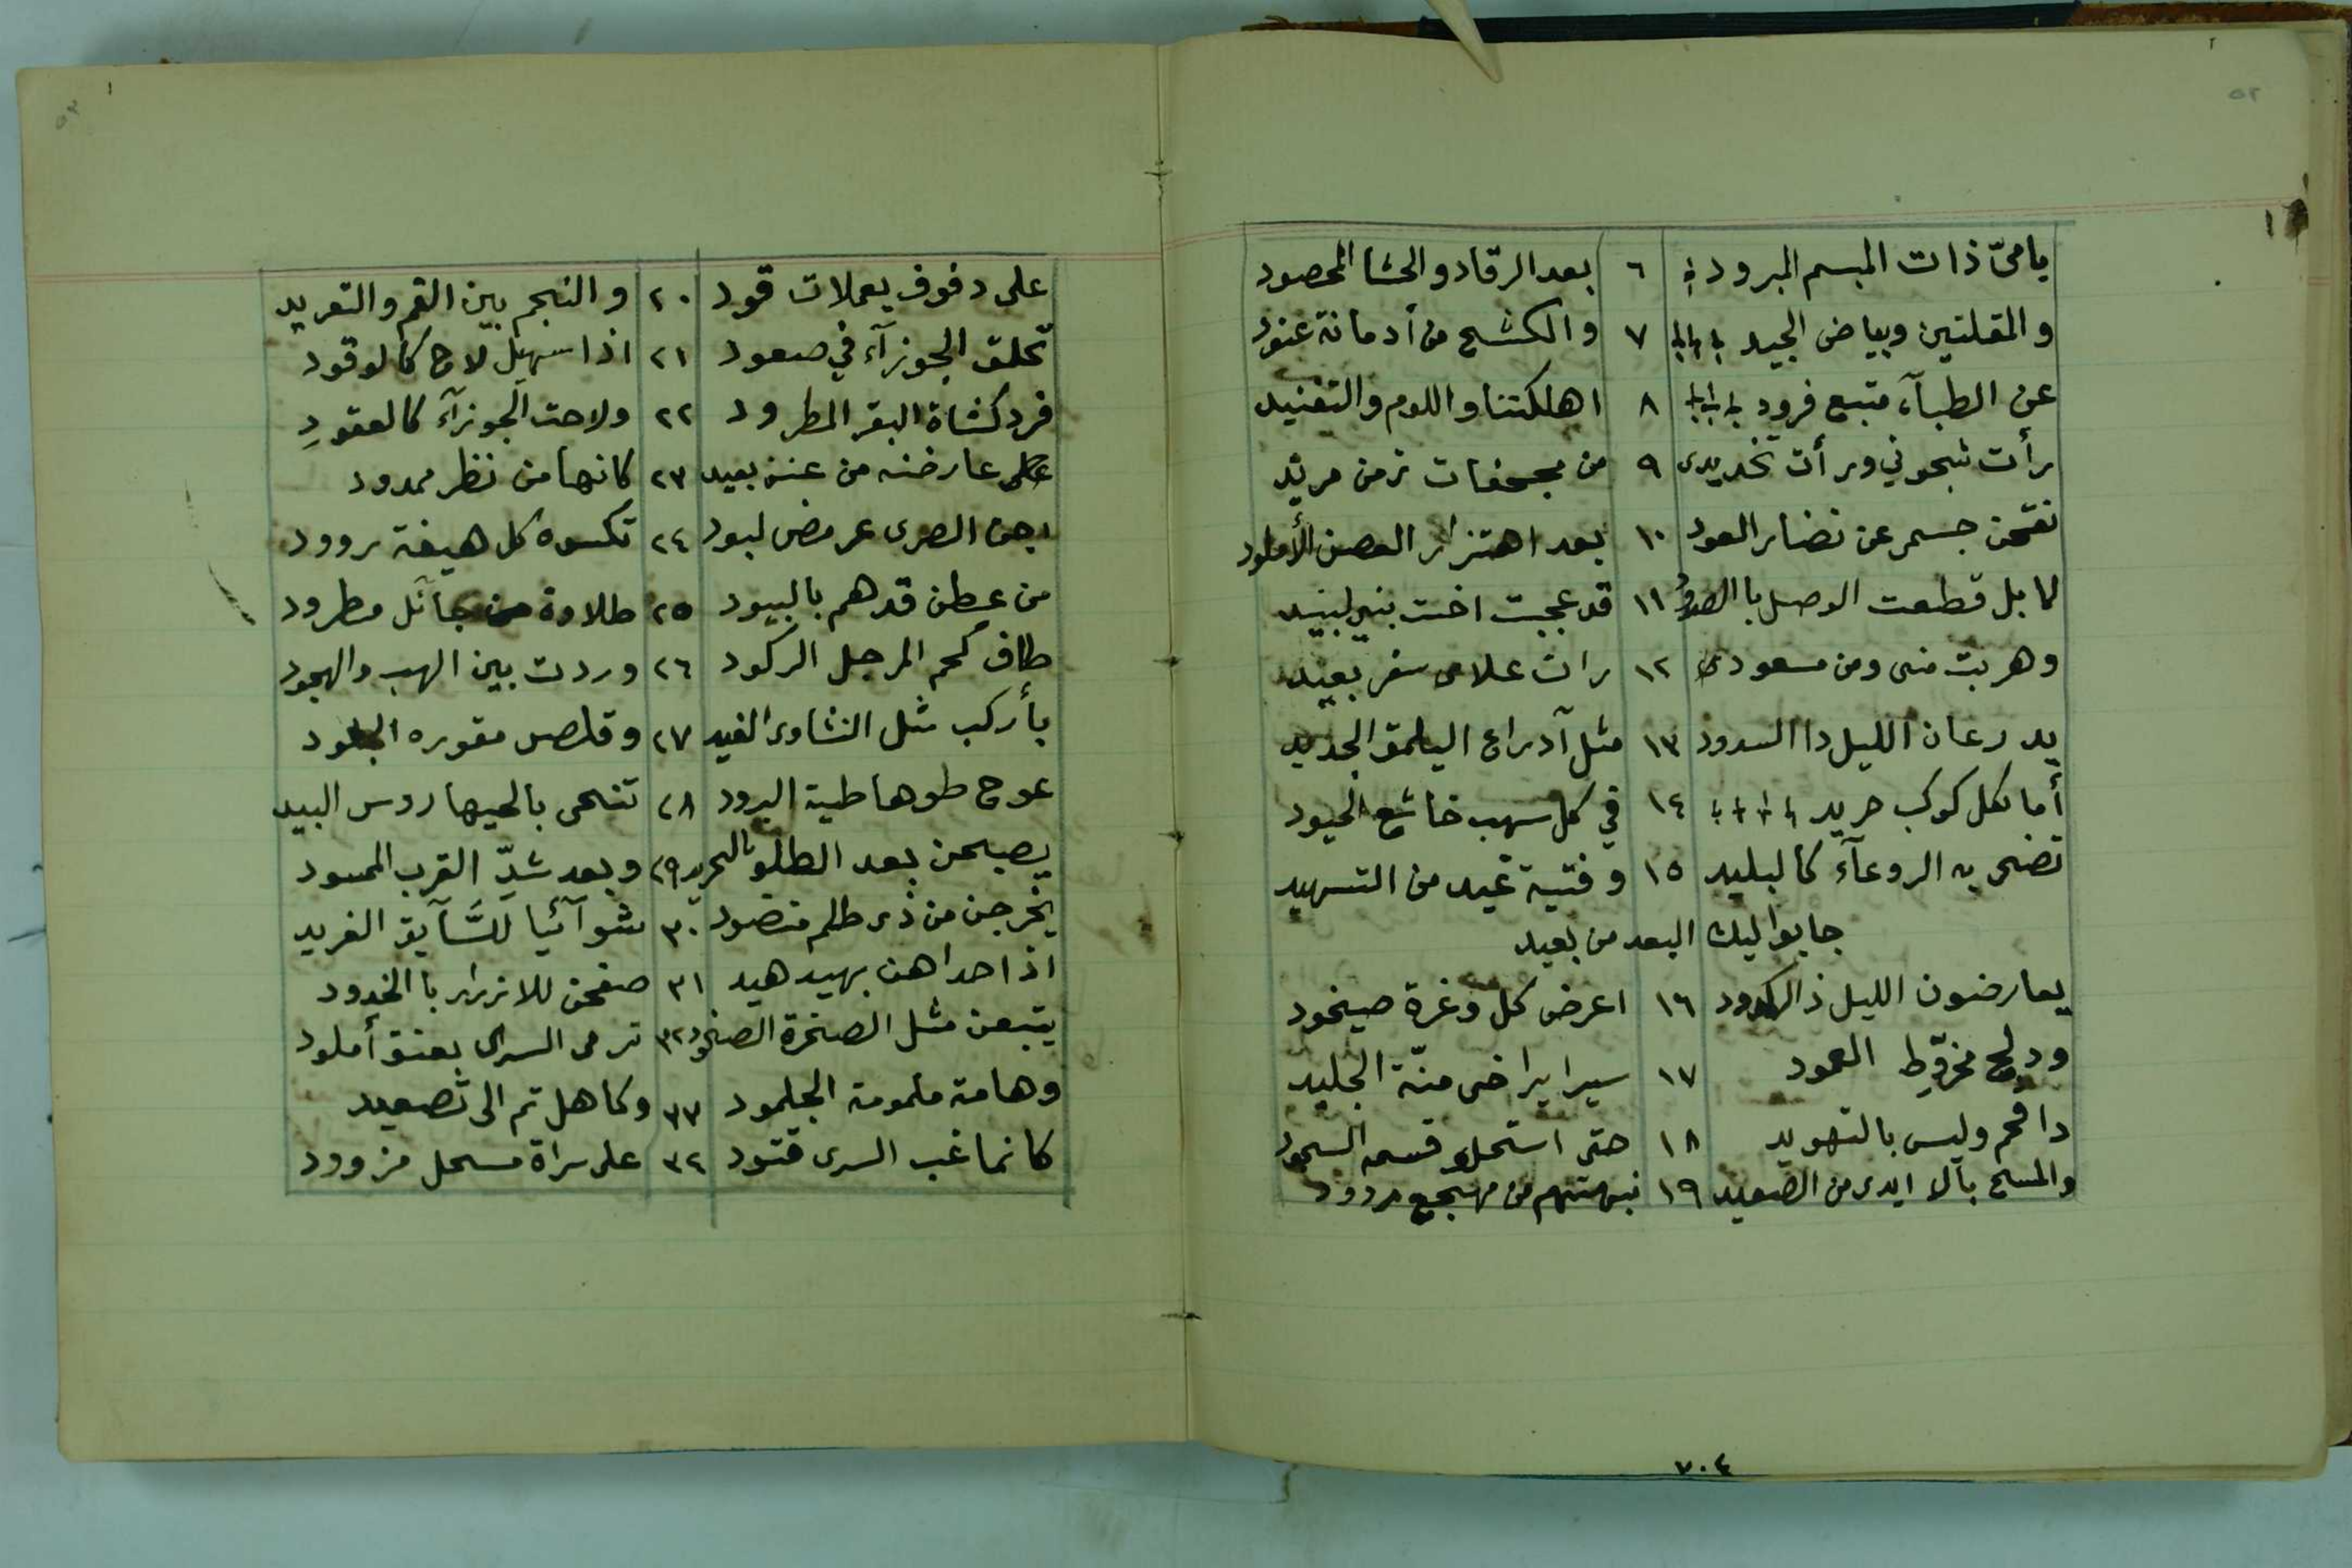 ٥٢
٢
١
يا ميّ ذات المبسم البرود ٦ بعد الرقاد والحشا المحصود
والمقلتين وبياض الجيد ٧ والكشح من أدمانة عنود
عن الظبآء متبع فرود ٨ اهلكتنا واللوم والتفنيد
رأت شجوني ورأت تخديدى ٩ من مجحفات زمن مريد
نقحن جسمى عن نضار العود ١٠ بعد اهتزاز الغصن الأملود
لا بل قطعت الوصل باالصدود ١١ قد عجبت اخت بنى لبيد
وهربت منى ومن مسعود ١٢ رات غلامى سفر بعيد
يدرعان الليل ذا السدود ١٣ مثل آدراع اليلمق الجديد
أما بكل كوكب حريد ١٤ في كل سهب خاشع الحيود
تضحى به الروعآء كالبليد ١٥ وفتية غيد من التسهيد
جابوا اليك البعد من بعيد
يعارضون الليل ذالكدود ١٦ اعرض كل وغرة صيخود
ودلج مخروّط العمود ١٧ سيرا يراخى منّة الجليد
ذا قحم وليس بالتهويد ١٨ حتى استحلو قسمه السجود
والمسح بالا ايدى من الصعيد ١٩ نبهتهم من مهجع مردود
٧٠٤
٥٣
١
على دفوف يعملات قود ٢٠ والنجم بين القم والتعريد
تحلق الجوزآء في صعود ٢١ اذا سهيل لاح كالوقود
فرد كشاة البقر المطرود ٢٢ ولاحت الجوزآء كالعقودِ
على عارضنه من عنن بعيد ٢٣ كانها من نظر ممدود
اجن الصرى عرمض لبود ٢٤ تكسوه كل هيفة رورود
من عطن قدهم بالبيود ٢٥ طلاوة من جآئل مطرود
طاف كحم المرجل الركود ٢٦ وردت بين الهب والهجود
بأركب مثل النشاوى الغيد ٢٧ وقلص مقوره الجلود
عوج طوها طية البرود ٢٨ تنحى بالحيها روس البيد
يصبحن بعد الطلق بالتجريد ٢٩ وبعد شدِّ القرب المسود
يخرجن من ذى ظلم منضود ٣٠ شوآئيا للسَّآيق الغريد
اذا حداهن بهيد هيد ٣١ صفحن للازرار باالخدود
يتبعن مثل الصخرة الصيخود ٣٢ ترمى السرى بعنق أملود
وهامة ملمومة الجلمود ٣٣ وكاهل تم الى تصعيد
كانما غب السرى قتود ٣٤ على سراة مسحل مزوود